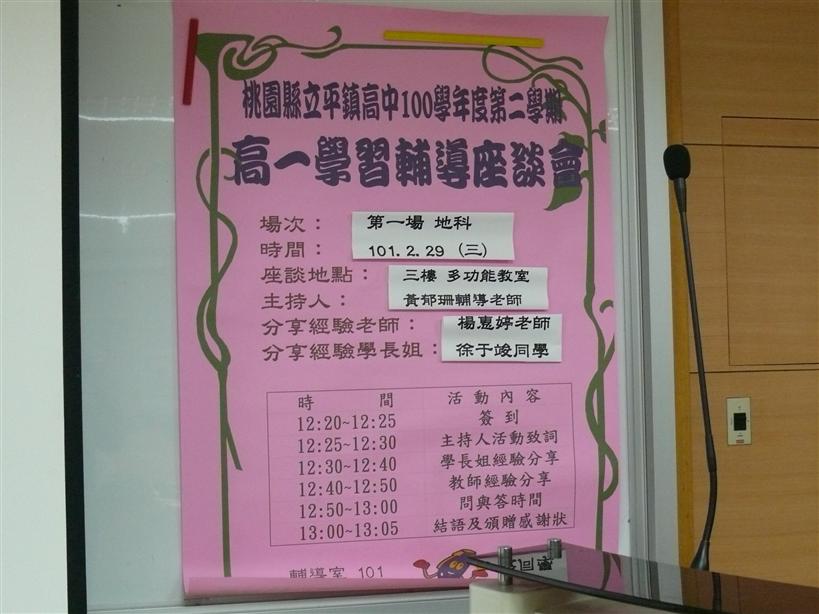 桃園縣立平鎮高中100學年度第二學期
高一學習輔導座談會
場次： 第一場 地科
時間： 101.2.29 (三)
座談地點： 三樓 多功能教室
主持人： 黃郁珊輔導老師
分享經驗老師： 楊惠婷老師
分享經驗學長姐： 徐于竣同學
時 間 活動內容
12:20~12:25 簽到
12:25~12:30 主持人活動致詞
12:30~12:40 學長姐經驗分享
12:40~12:50 教師經驗分享
12:50~13:00 問與答時間
13:00~13:05 結語及頒贈感謝狀
輔導室 101